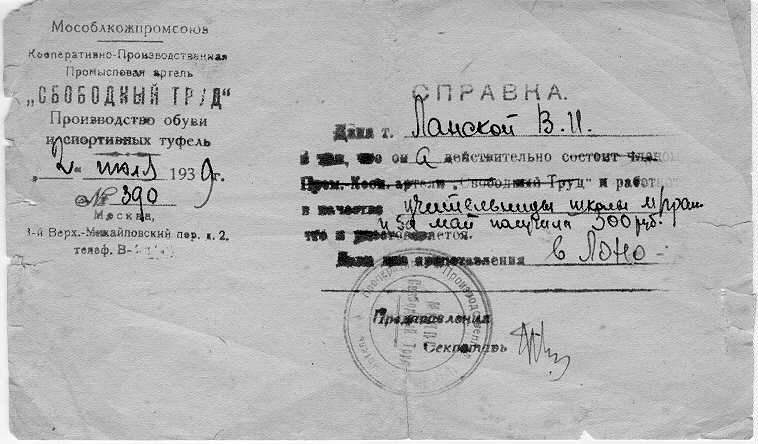 Мособлкожпромсоюз
Кооперативно-Производственная
Промысловая артель
„СВОБОДНЫЙ ТРУД“
Производство обуви
и спортивных туфель
„2“ июля 1939г.
№ 390
Москва,
1-й Верх.-Михайловский пер. д. 2.
телеф. В-
СПРАВКА.
Дана т. Ланской В. И.
в том, что он а действительно состоит членом
Пром. Кооп. артели „Свободный Труд“ и работает
в качестве учительницы школы
и за май получила 300 руб.
что и удостоверяется.
Дана для представления в ЛОНО
Пред. правления
Секретарь